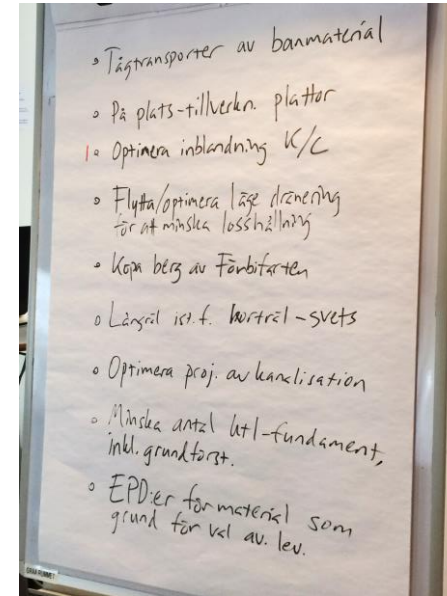 • Tågtransporter av banmaterial
• På plats-tillverkn. plattor
1 • Optimera inblandning K/C
• Flytta/optimera läge dränering
för att minska losshållning
• Köpa berg av Förbifarten
• Långräl ist.f. korträl - svets
• Optimera proj. av kanalisation
• Minska antal ktl-fundament,
inkl. grundförst.
• EPD:er för material som
grund för val av. lev.